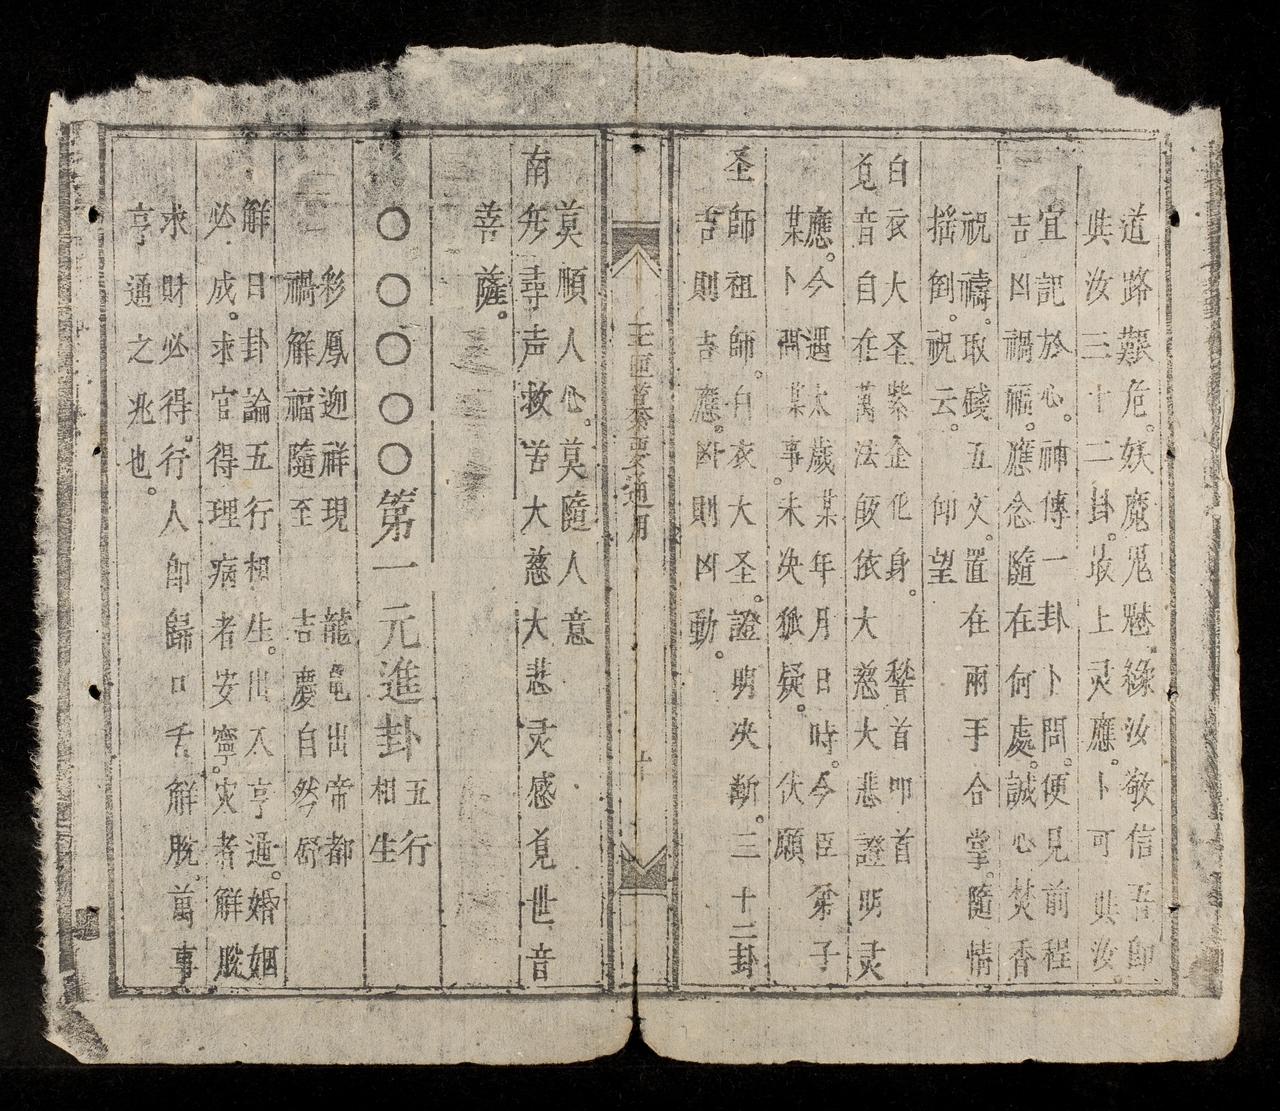 道路艱危。妖魔鬼魅。緣汝敬信吾。即
與汝三十二卦。最上灵應。卜可與汝。
宜記於心。神傳一卦卜問。便見前程
吉凶禍福。應念隨在何處。誠心焚香
祝禱。取錢五文。置在兩手合掌。隨情
摇倒。祝云。仰望
白衣大圣紫金化身。 稽首叩首
覓音自在萬法皈依大慈大悲證明灵
應。今遇太歲某年月日時。今臣弟子
某卜問某事。未决狐疑。伏願
圣師祖師。白衣大圣。證明决断。三十二卦
吉則吉應。凶則凶動。
玉匣

通用
十
莫順人心。莫隨人意
南无尋声救苦大慈大悲灵感覓世音
菩薩。
〇〇〇〇〇第一元進卦 五行相生
彩鳳迎祥現 龍黽出帝都
禍解福隨至 吉慶自然舒
解曰卦論五行相生。出入亨通。婚姻
必成。求官得理病者安寧。灾者解脫
求財必得。行人即歸口舌解脫。萬事
亨通之兆也。